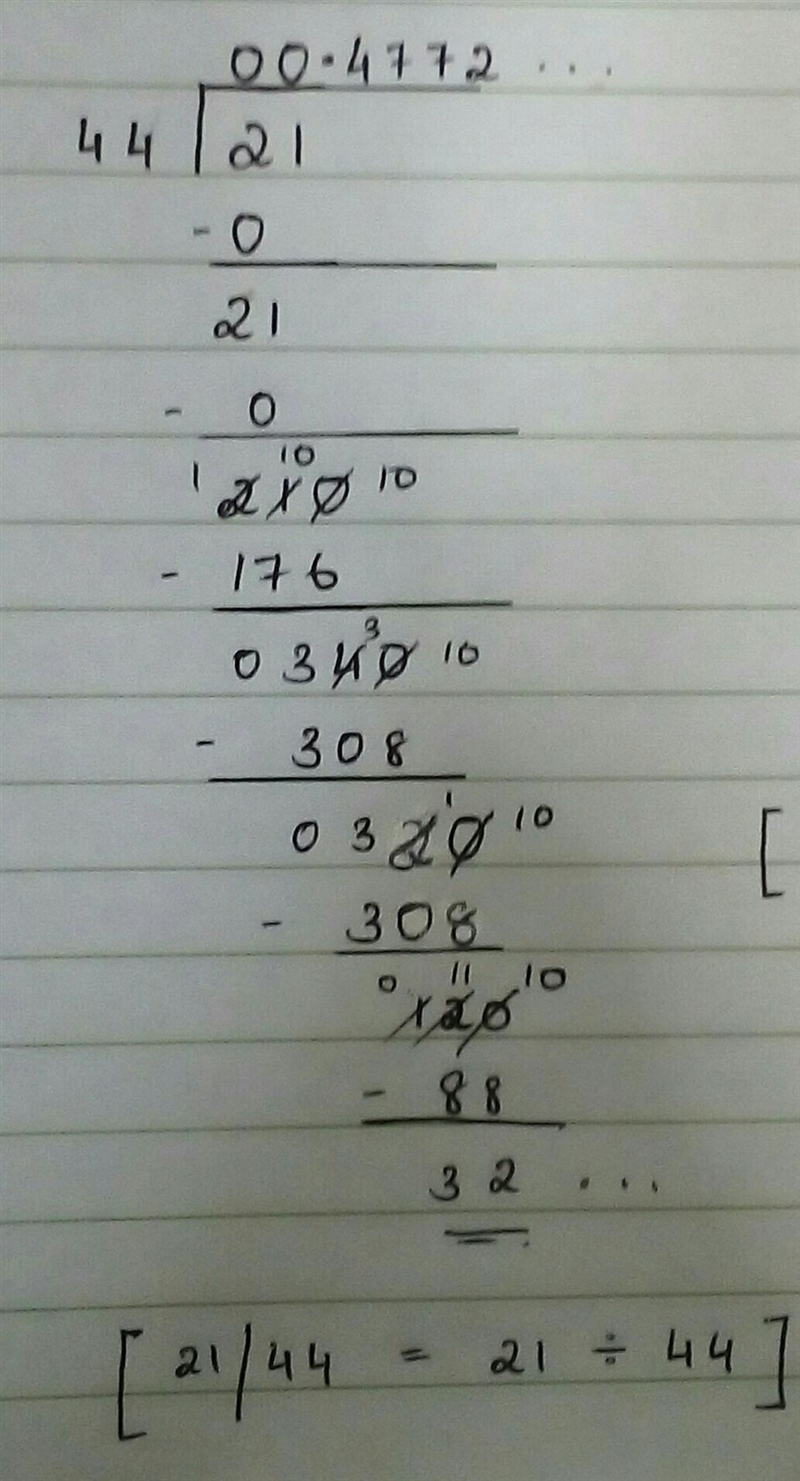 00.4772 ...
44 21
- 0
21
- 0
10
1 210 10
- 176
3
0340 10
- 308
1
0320 10
[
- 308
0 11 10
120
- 88
32 ...
[ 21/44 = 21 ÷ 44 ]